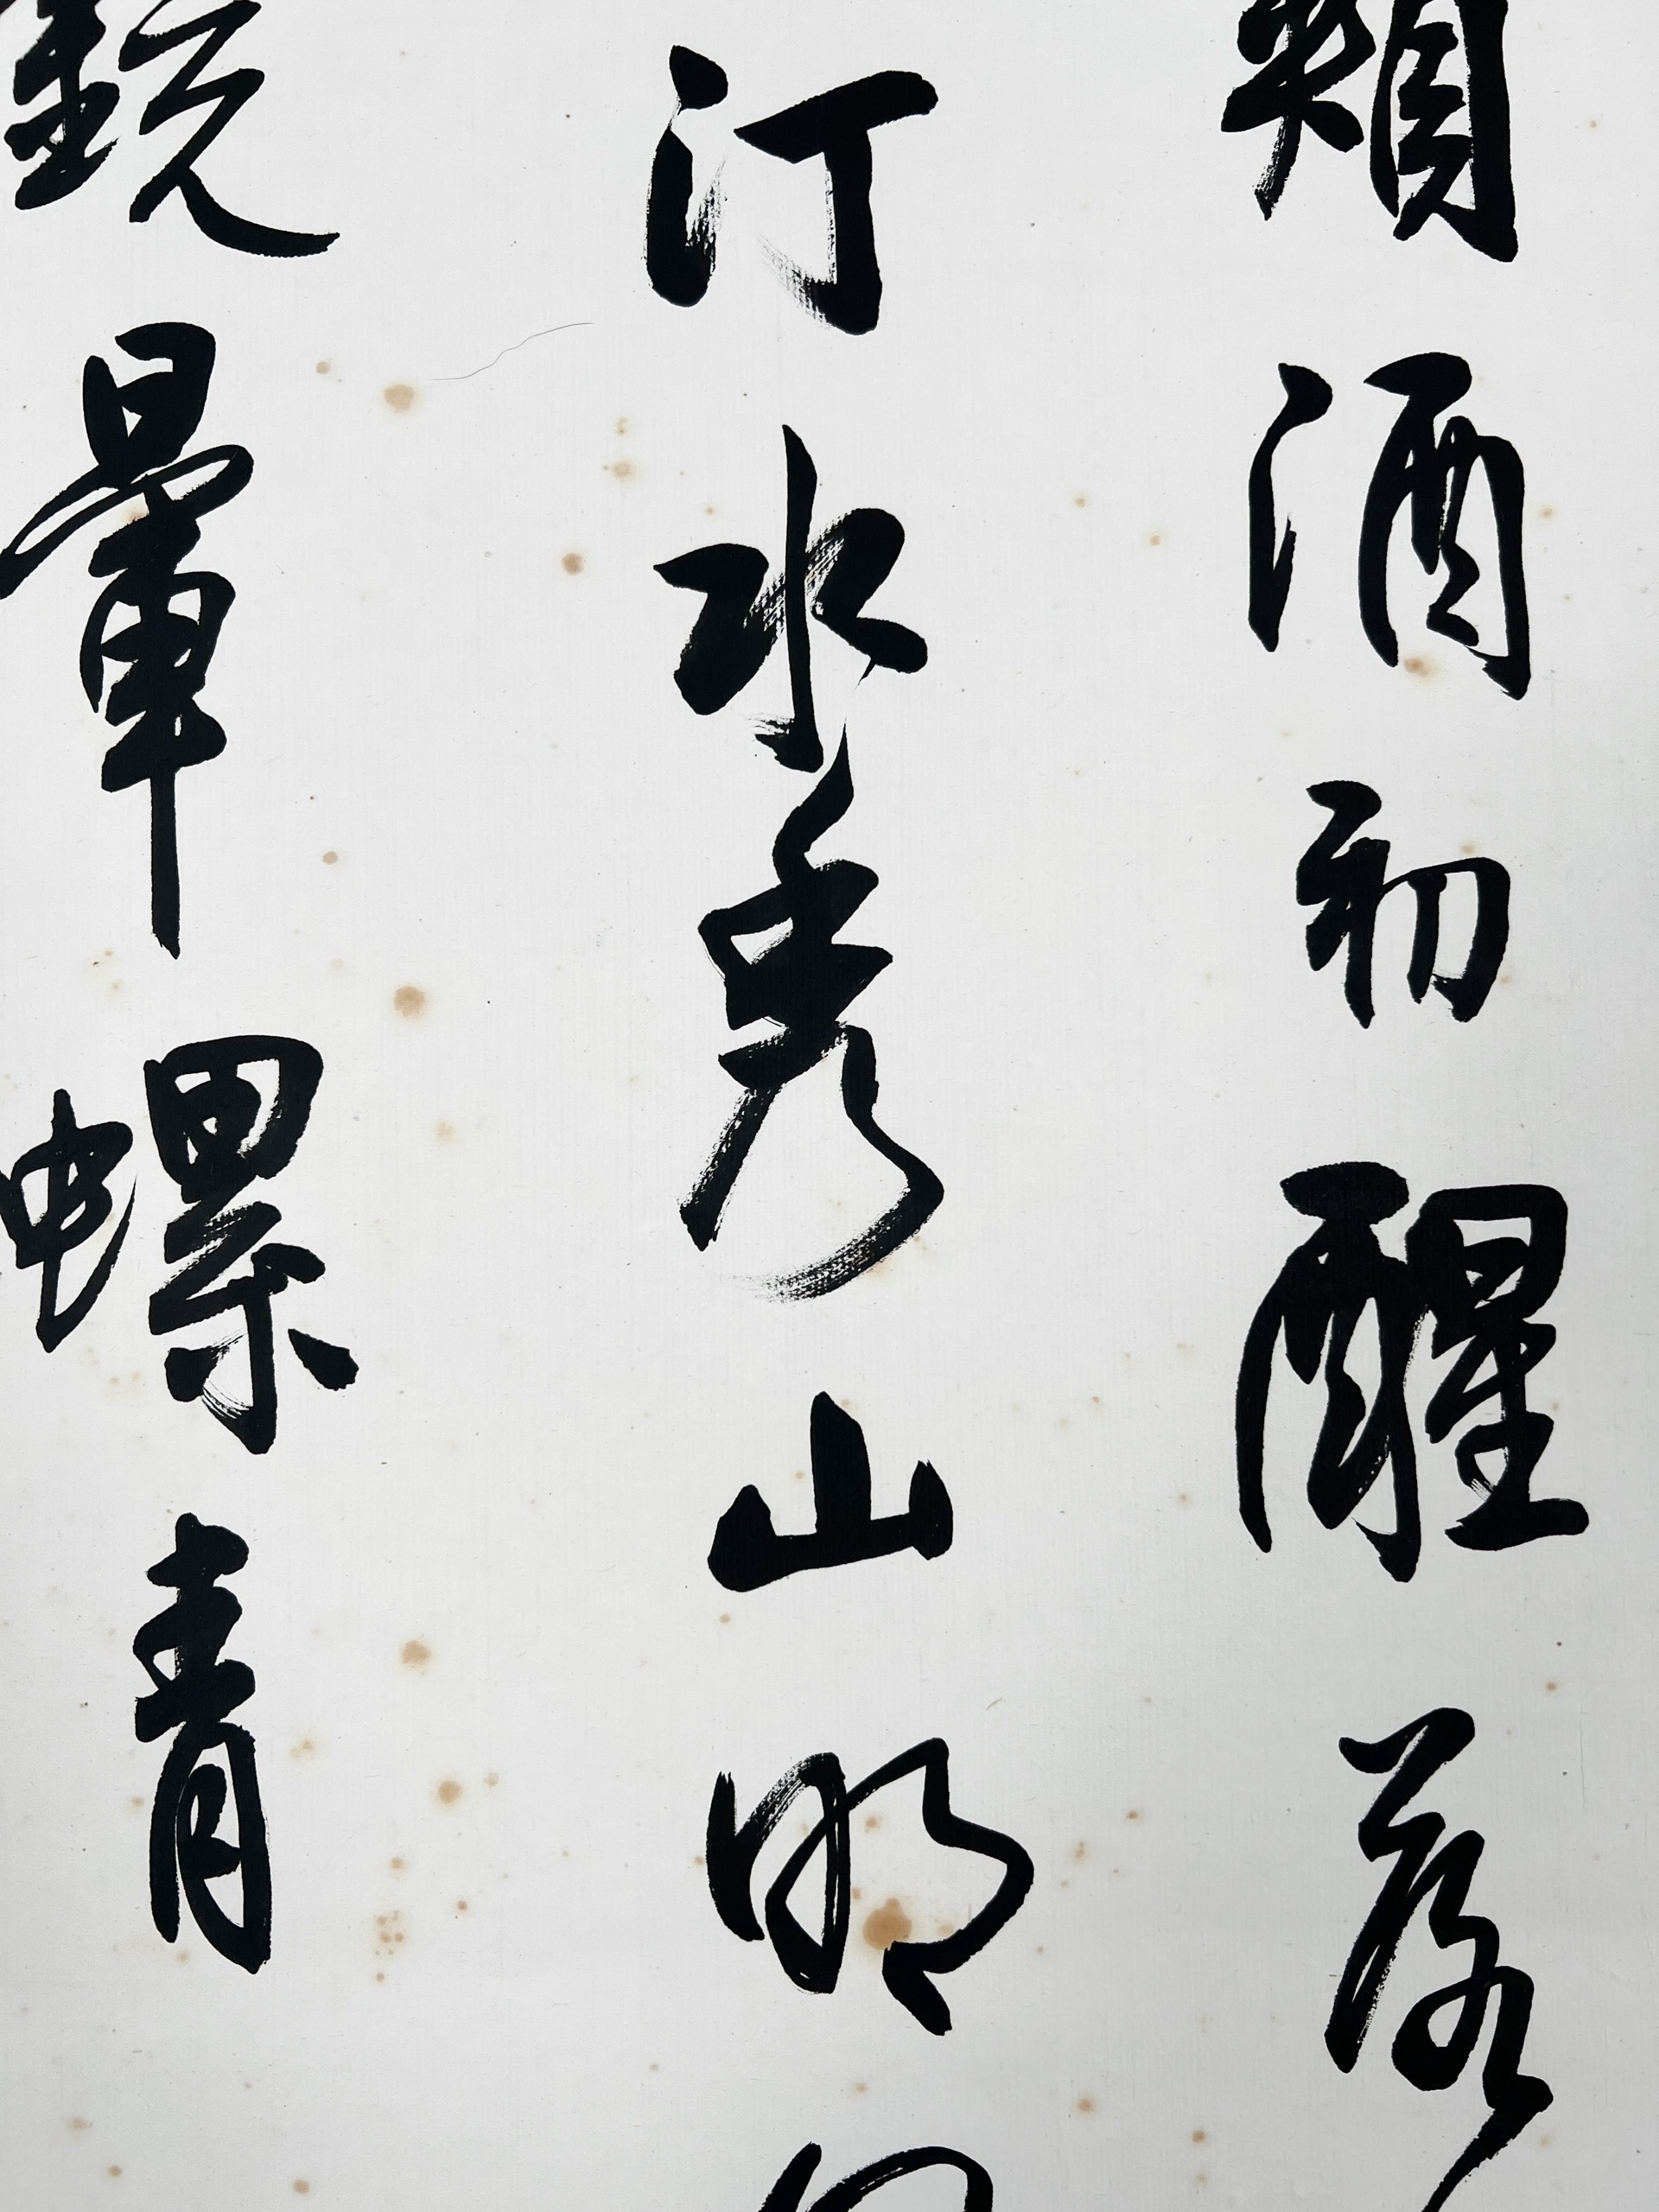 類酒初醒落
汀水秀山明
鏡暈螺青